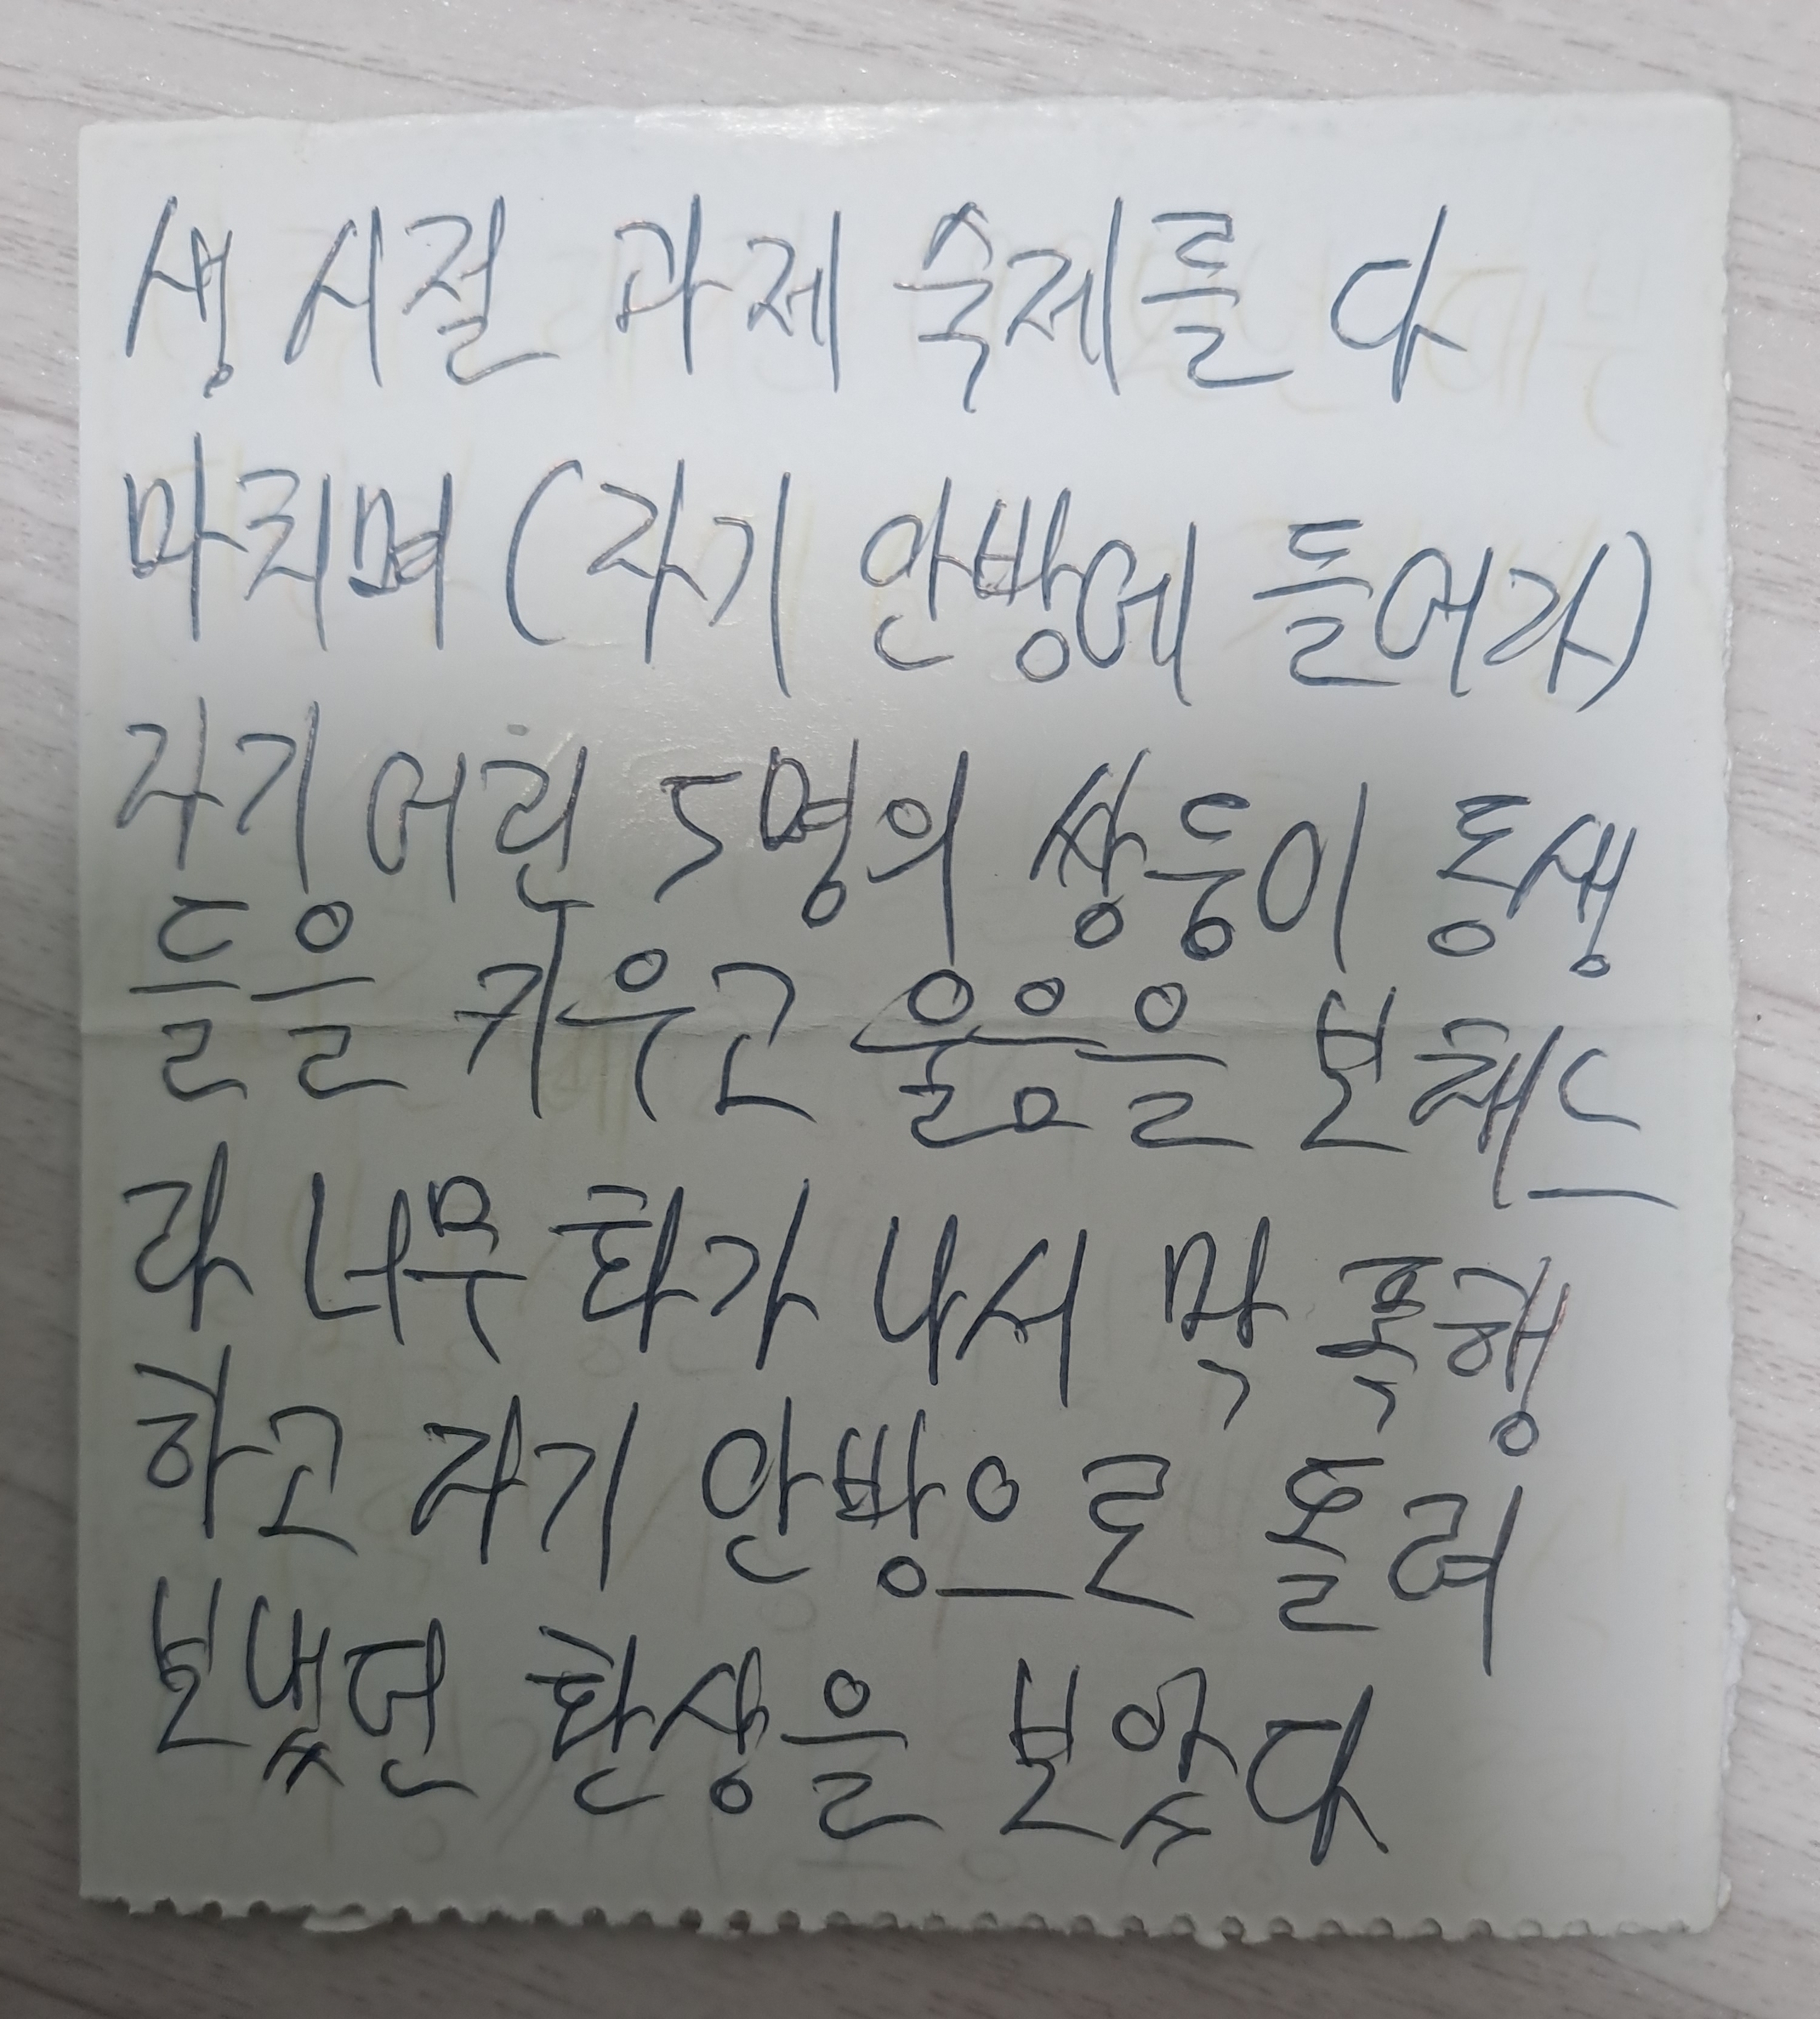 생 시절 과제 숙제를 다
마치며 (자기 안방에 들어가)
자기 어린 5명의 쌍둥이 동생
들을 키우고 울음을 보채느
라 너무 화가 나서 막 폭행
하고 자기 안방으로 돌려
보냈던 환상을 보았다